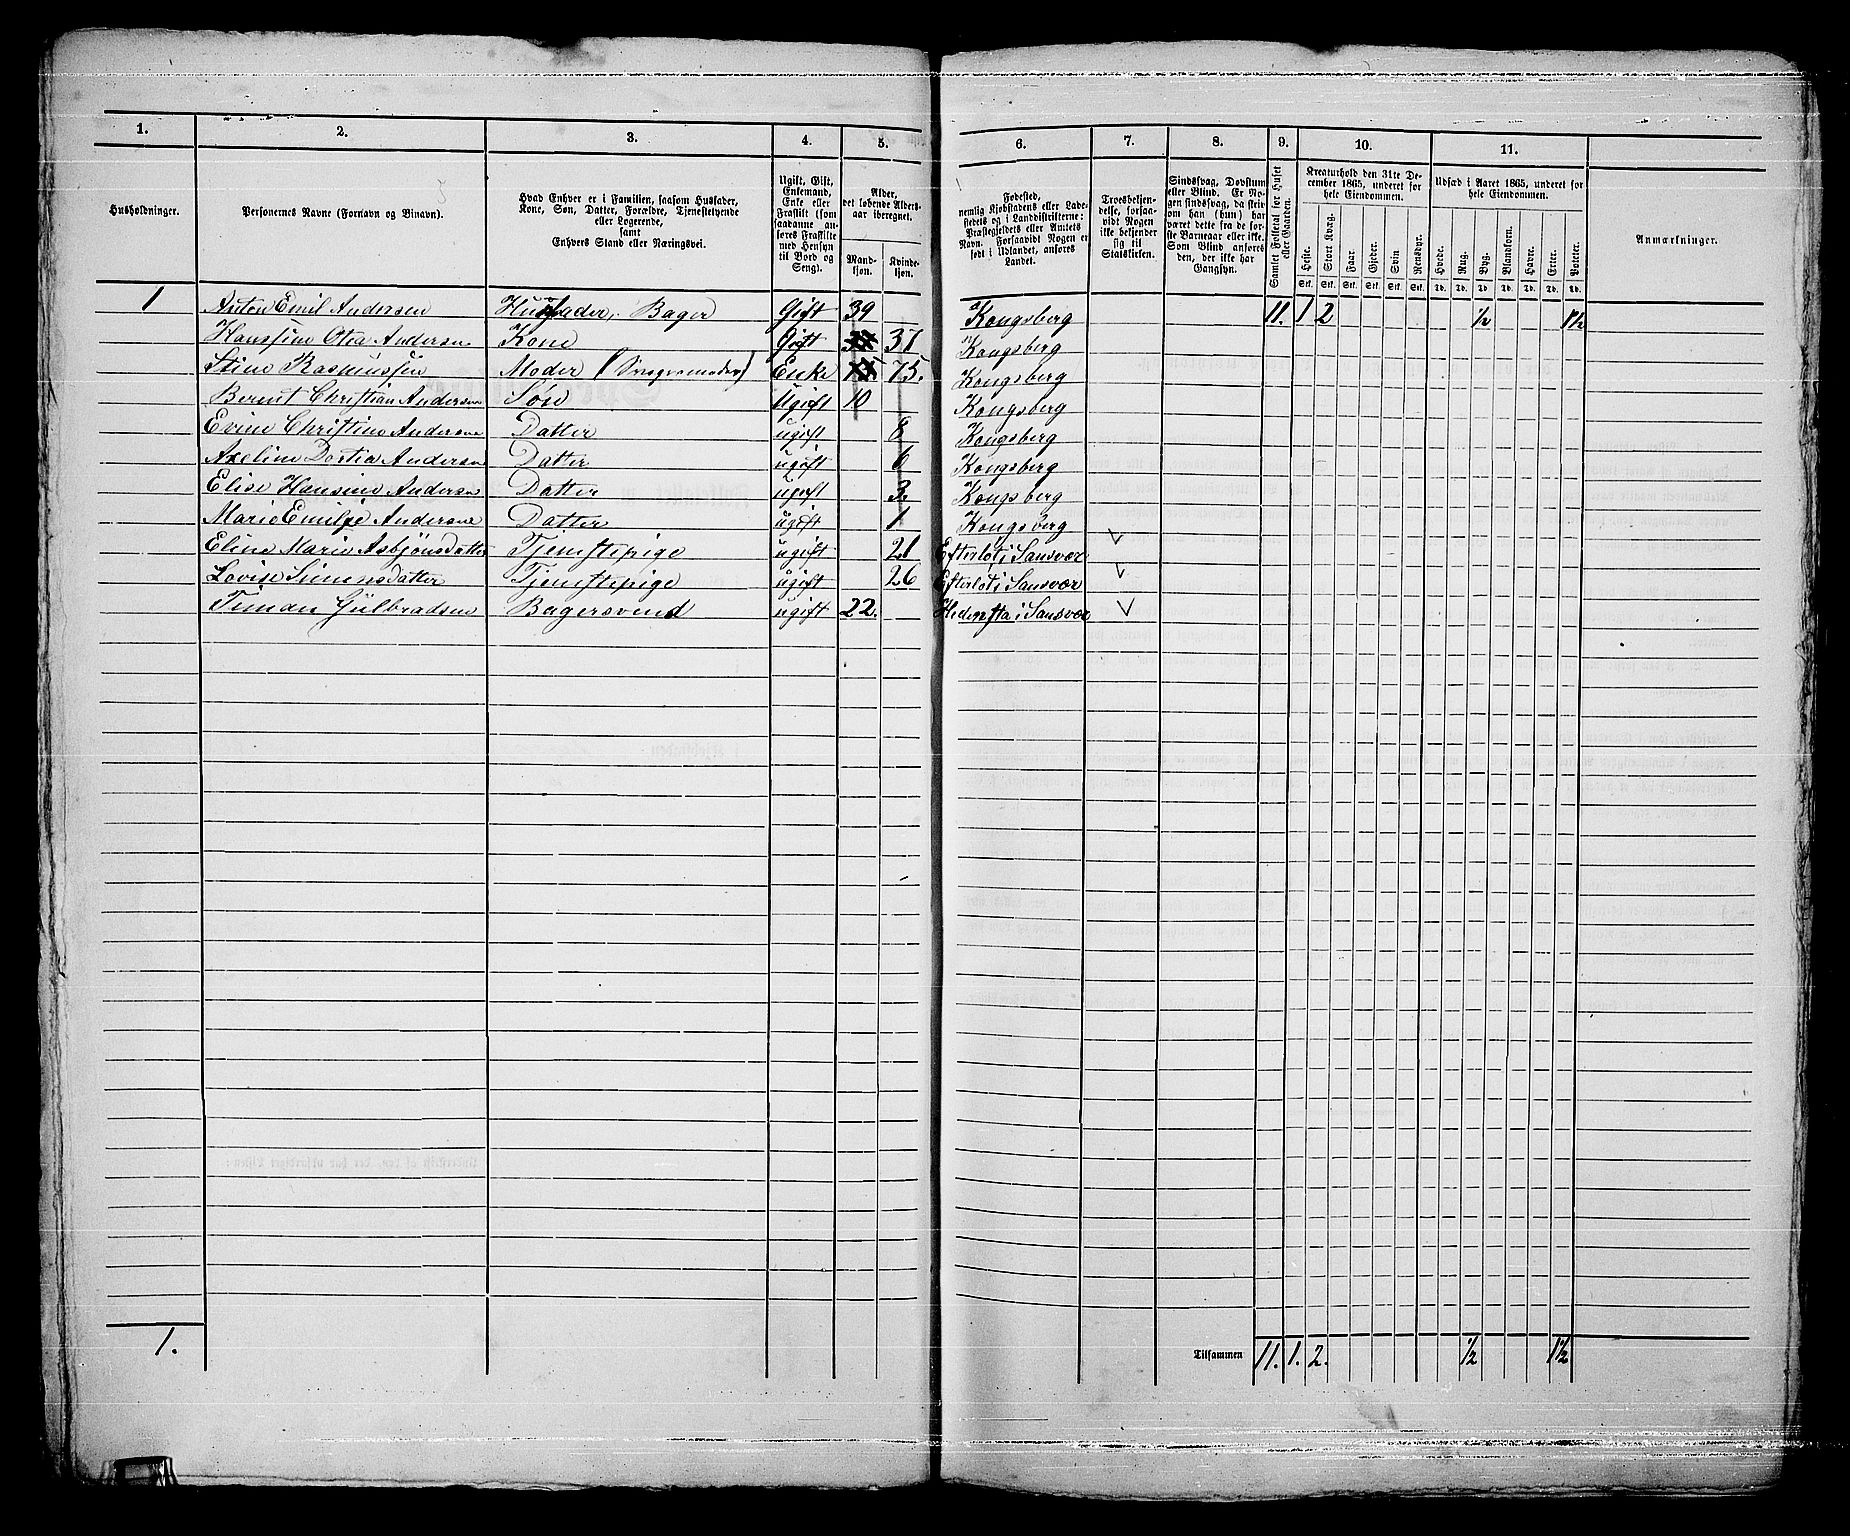 1. 2. 3. 4. 5. 6. 7. 8. 9. 10. 11.
Husholdninger.
Personernes Navne (Fornavn og Binavn).
Hvad Enhver er i Familien, saasom Husfader,
Kone, Søn, Datter, Forældre, Tjenestetyende
eller Logerende,
samt
Enhvers Stand eller Næringsvei.
Ugift, Gift,
Enkemand,
Enke eller
Fraskilt (som
saadanne an-
føres Fraskilte
med Hensyn
til Bord og
Seng).
Alder,
det løbende Alders-
aar iberegnet.
Mand-
kjøn.
Kvinde-
kjøn.
Fødested,
nemlig Kjøbstadens eller Lade-
stedets og i Landdistrikterne:
Præstegjeldets eller Amtets
Navn. Forsaavidt Nogen er
født i Udlandet, anføres
Landet.
Troesbekjen-
delse, forsaa-
vidt Nogen
ikke bekjender
sig til
Statskirken.
Sindssvag, Døvstum
eller Blind. Er No-
gen sindssvag, da skriv
om han (hun) har
været dette fra de før-
ste Barneaar eller ikke.
Som Blind anføres
den, der ikke har
Gangsyn.
Samlet Folketal for Huset
eller Gaarden.
Kreaturhold den 31te De-
cember 1865, underet for
hele Eiendommen.
Heste. Stort Kvæg. Faar. Gjeder. Svin Rensdyr.
Stk. Stk. Stk. Stk. Stk. Stk.
Udsæd i Aaret 1865, underet for
hele Eiendommen.
Hvede. Rug. Byg. Blandkorn. Havre. Erter. Poteter.
Td. Td. Td. Td. Td. Td. Td.
Anmærkninger.
1 Anton Emil Andersen Husfader, Bager Gift 39 Kongsberg 11. 1 2 ½ 1½
Hanssine Otea Andersen Kone Gift 37 Kongsberg
Stine Rasmussen Moder (Svigermoder) Enke 75. Kongsberg
Bernt Christian Andersen Søn Ugift 10 Kongsberg
Evine Christine Andersen Datter ugift 8 Kongsberg
Axeline Dortia Andersen Datter ugift 6 Kongsberg
Elise Hansine Andersen Datter ugift 3. Kongsberg
Marie Emilie Andersen Datter ugift 1 Kongsberg
Eline Marie Asbjönsdatter Tjenstepige ugift 21 Efterlot i Sansvær
Lovise Simensdatter Tjenstepige ugift 26 Efterlot i Sansvær
Timan Gulbradsen Bagersvend ugift 22. Hedensta i Sansvær
1. Tilsammen 11. 1. 2. ½ 1½